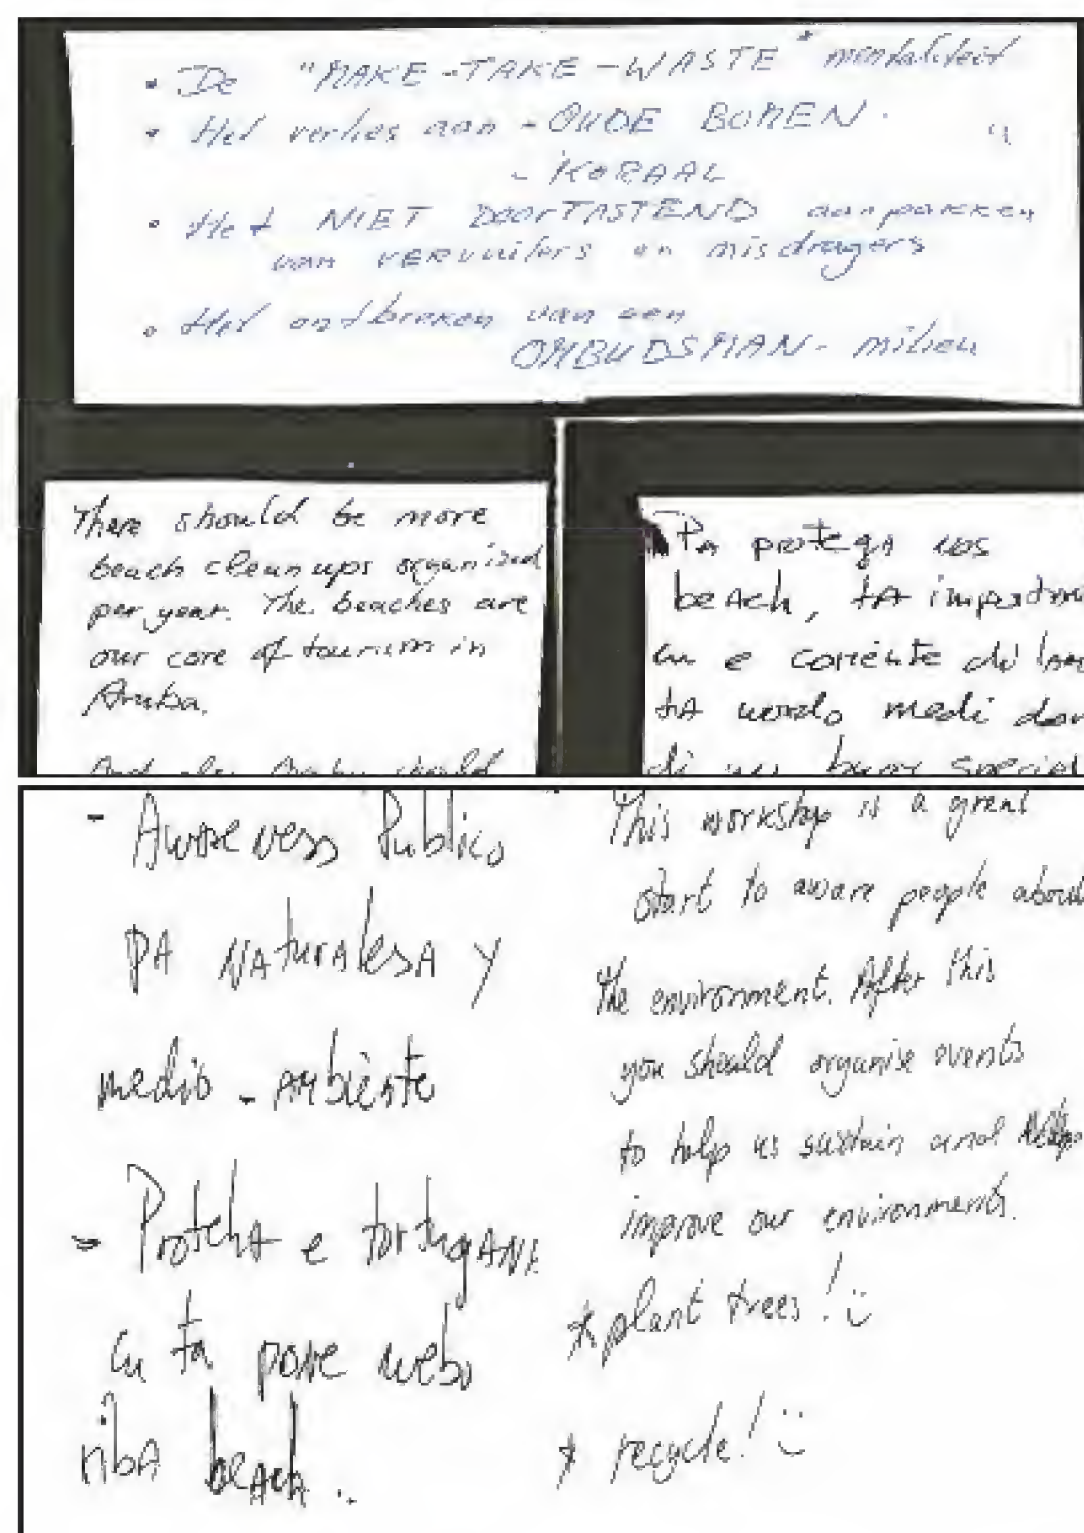 • De "MAKE-TAKE-WASTE" mentaliteit
• Het verlies aan - OUDE BOMEN.
- KORAAL
• Het NIET DOORTASTEND aanpakken
van vervuilers en misdragers
• Het ontbreken van een
OMBUDSMAN- milieu
There should be more
beach cleanups organized
per year. The beaches are
our core of tourism in
Aruba.
And Aruba should
Pa protega nos
beach, ta important
cu e coriente di
ta wordo medi
di un special
- Awareness Publico
PA NATURALESA Y
medio - AMbiente
- Proteha e tortugANAN
cu ta pone webo
riba beach..
This workshop is a great
start to aware people about
the environment. After this
you should organise events
to help us sustain and
improve our environments.
* plant trees! :)
* recycle! :)